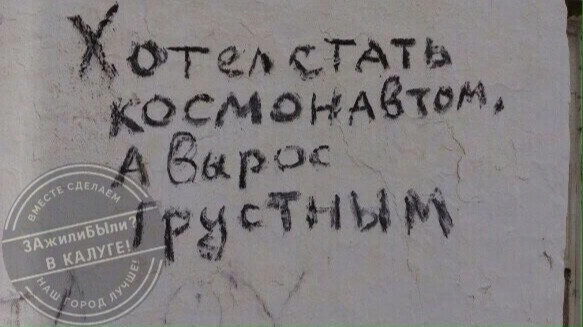 Хотел стать
космонавтом,
А вырос
грустным
ВМЕСТЕ СДЕЛАЕМ
ЗАжилиБЫли?
В КАЛУГЕ!
НАШ ГОРОД ЛУЧШЕ!